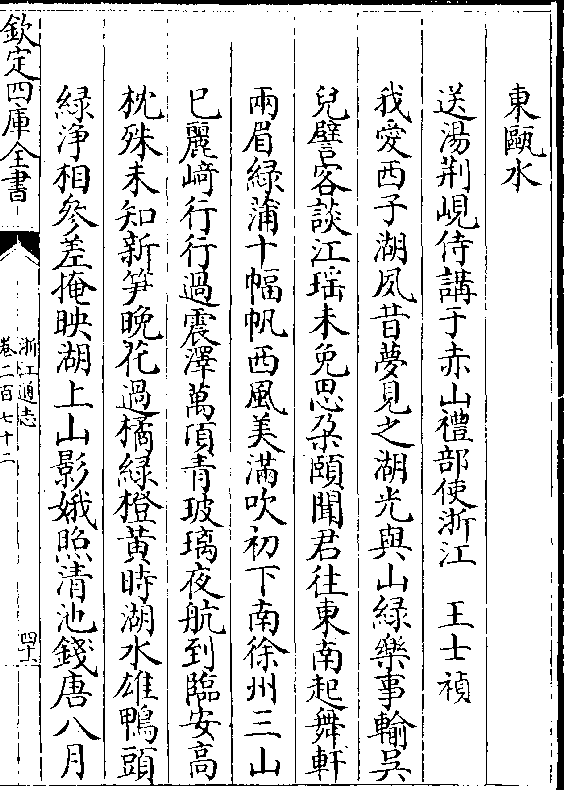 東甌水
送湯荆峴侍講于赤山禮部使浙江　王士禎
我愛西子湖夙昔夢見之湖光與山緑樂事輸吳
兒譬客談江瑶未免思朶頤聞君往東南起舞軒
兩眉緑蒲十幅帆西風美滿吹初下南徐州三山
已麗﨑行行過震澤萬頃青玻璃夜航到臨安高
枕殊未知新笋晩花過橘緑橙黄時湖水雄鴨頭
緑浄相參差掩映湖上山影娥照清池錢唐八月
欽定四庫全書
浙江通志
卷二百七十二
四十六